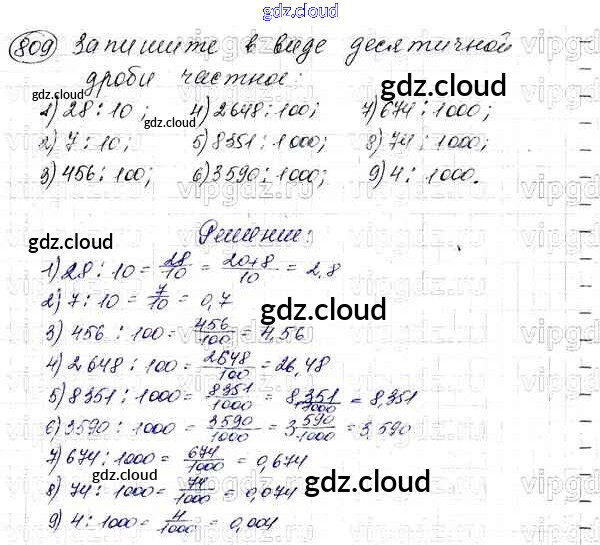 gdz.cloud
gdz.cloud
809 Запишите в виде десятичной
дроби частное:
gdz.cloud
gdz.cloud
1) 28 : 10; 4) 2648 : 100; 7) 674 : 1000;
gdz.cloud
2) 7 : 10; 5) 8351 : 1000; 8) 74 : 1000;
3) 456 : 100; 6) 3590 : 1000; 9) 4 : 1000.
vipgdz.ru
Решение:
gdz.cloud
gdz.cloud
1) 28 : 10 = 28/10 = 20+8/10 = 2,8
2) 7 : 10 = 7/10 = 0,7
gdz.cloud
3) 456 : 100 = 456/100 = 4,56
4) 2648 : 100 = 2648/100 = 26,48
5) 8351 : 1000 = 8351/1000 = 8 351/1000 = 8,351
6) 3590 : 1000 = 3590/1000 = 3 590/1000 = 3,590
7) 674 : 1000 = 674/1000 = 0,674
gdz.cloud
8) 74 : 1000 = 74/1000 = 0,074
gdz.cloud
9) 4 : 1000 = 4/1000 = 0,004